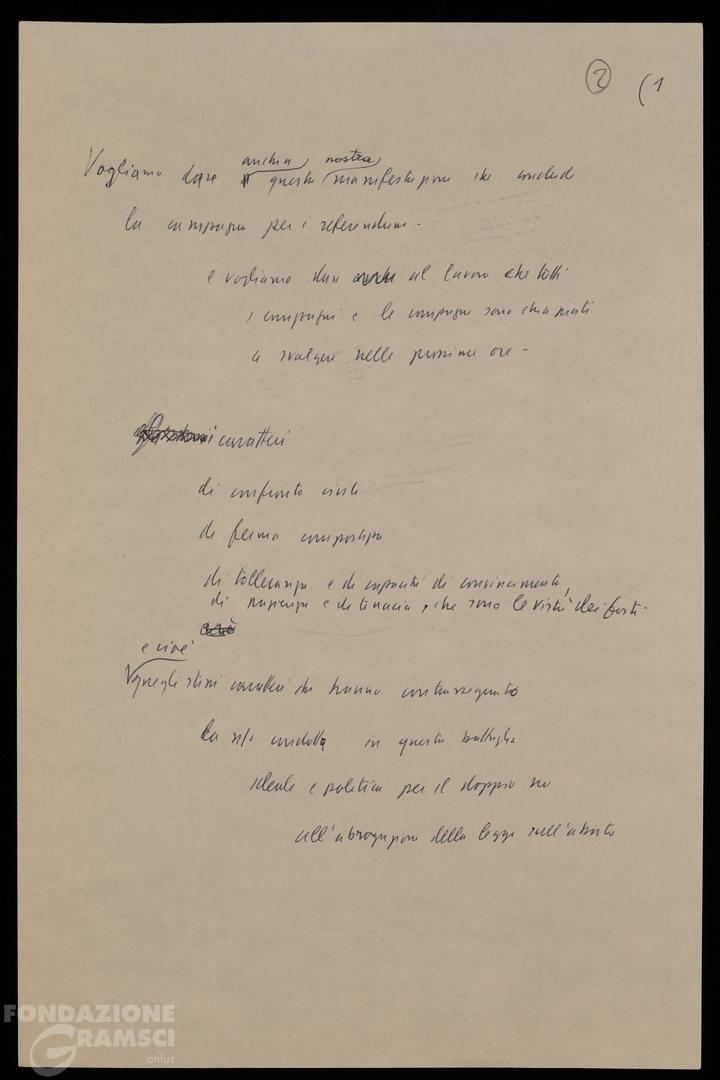 2 (1
anche a nostra
Vogliamo dare questa manifestazione che conclude
la campagna per i referendum -
e vogliamo dare anche al lavoro che tutti
i compagni e le compagne sono chiamati
a svolgere nelle prossime ore -
i caratteri
di confronto civile
di ferma compostezza
di tolleranza e di capacità di convincimento,
di pazienza e di tenacia, che sono le virtù dei forti -
e cioè
quegli stessi caratteri che hanno contrassegnato
la ns/ condotta in questa battaglia
ideale e politica per il doppio no
all'abrogazione della legge sull'aborto
FONDAZIONE
GRAMSCI
onlus